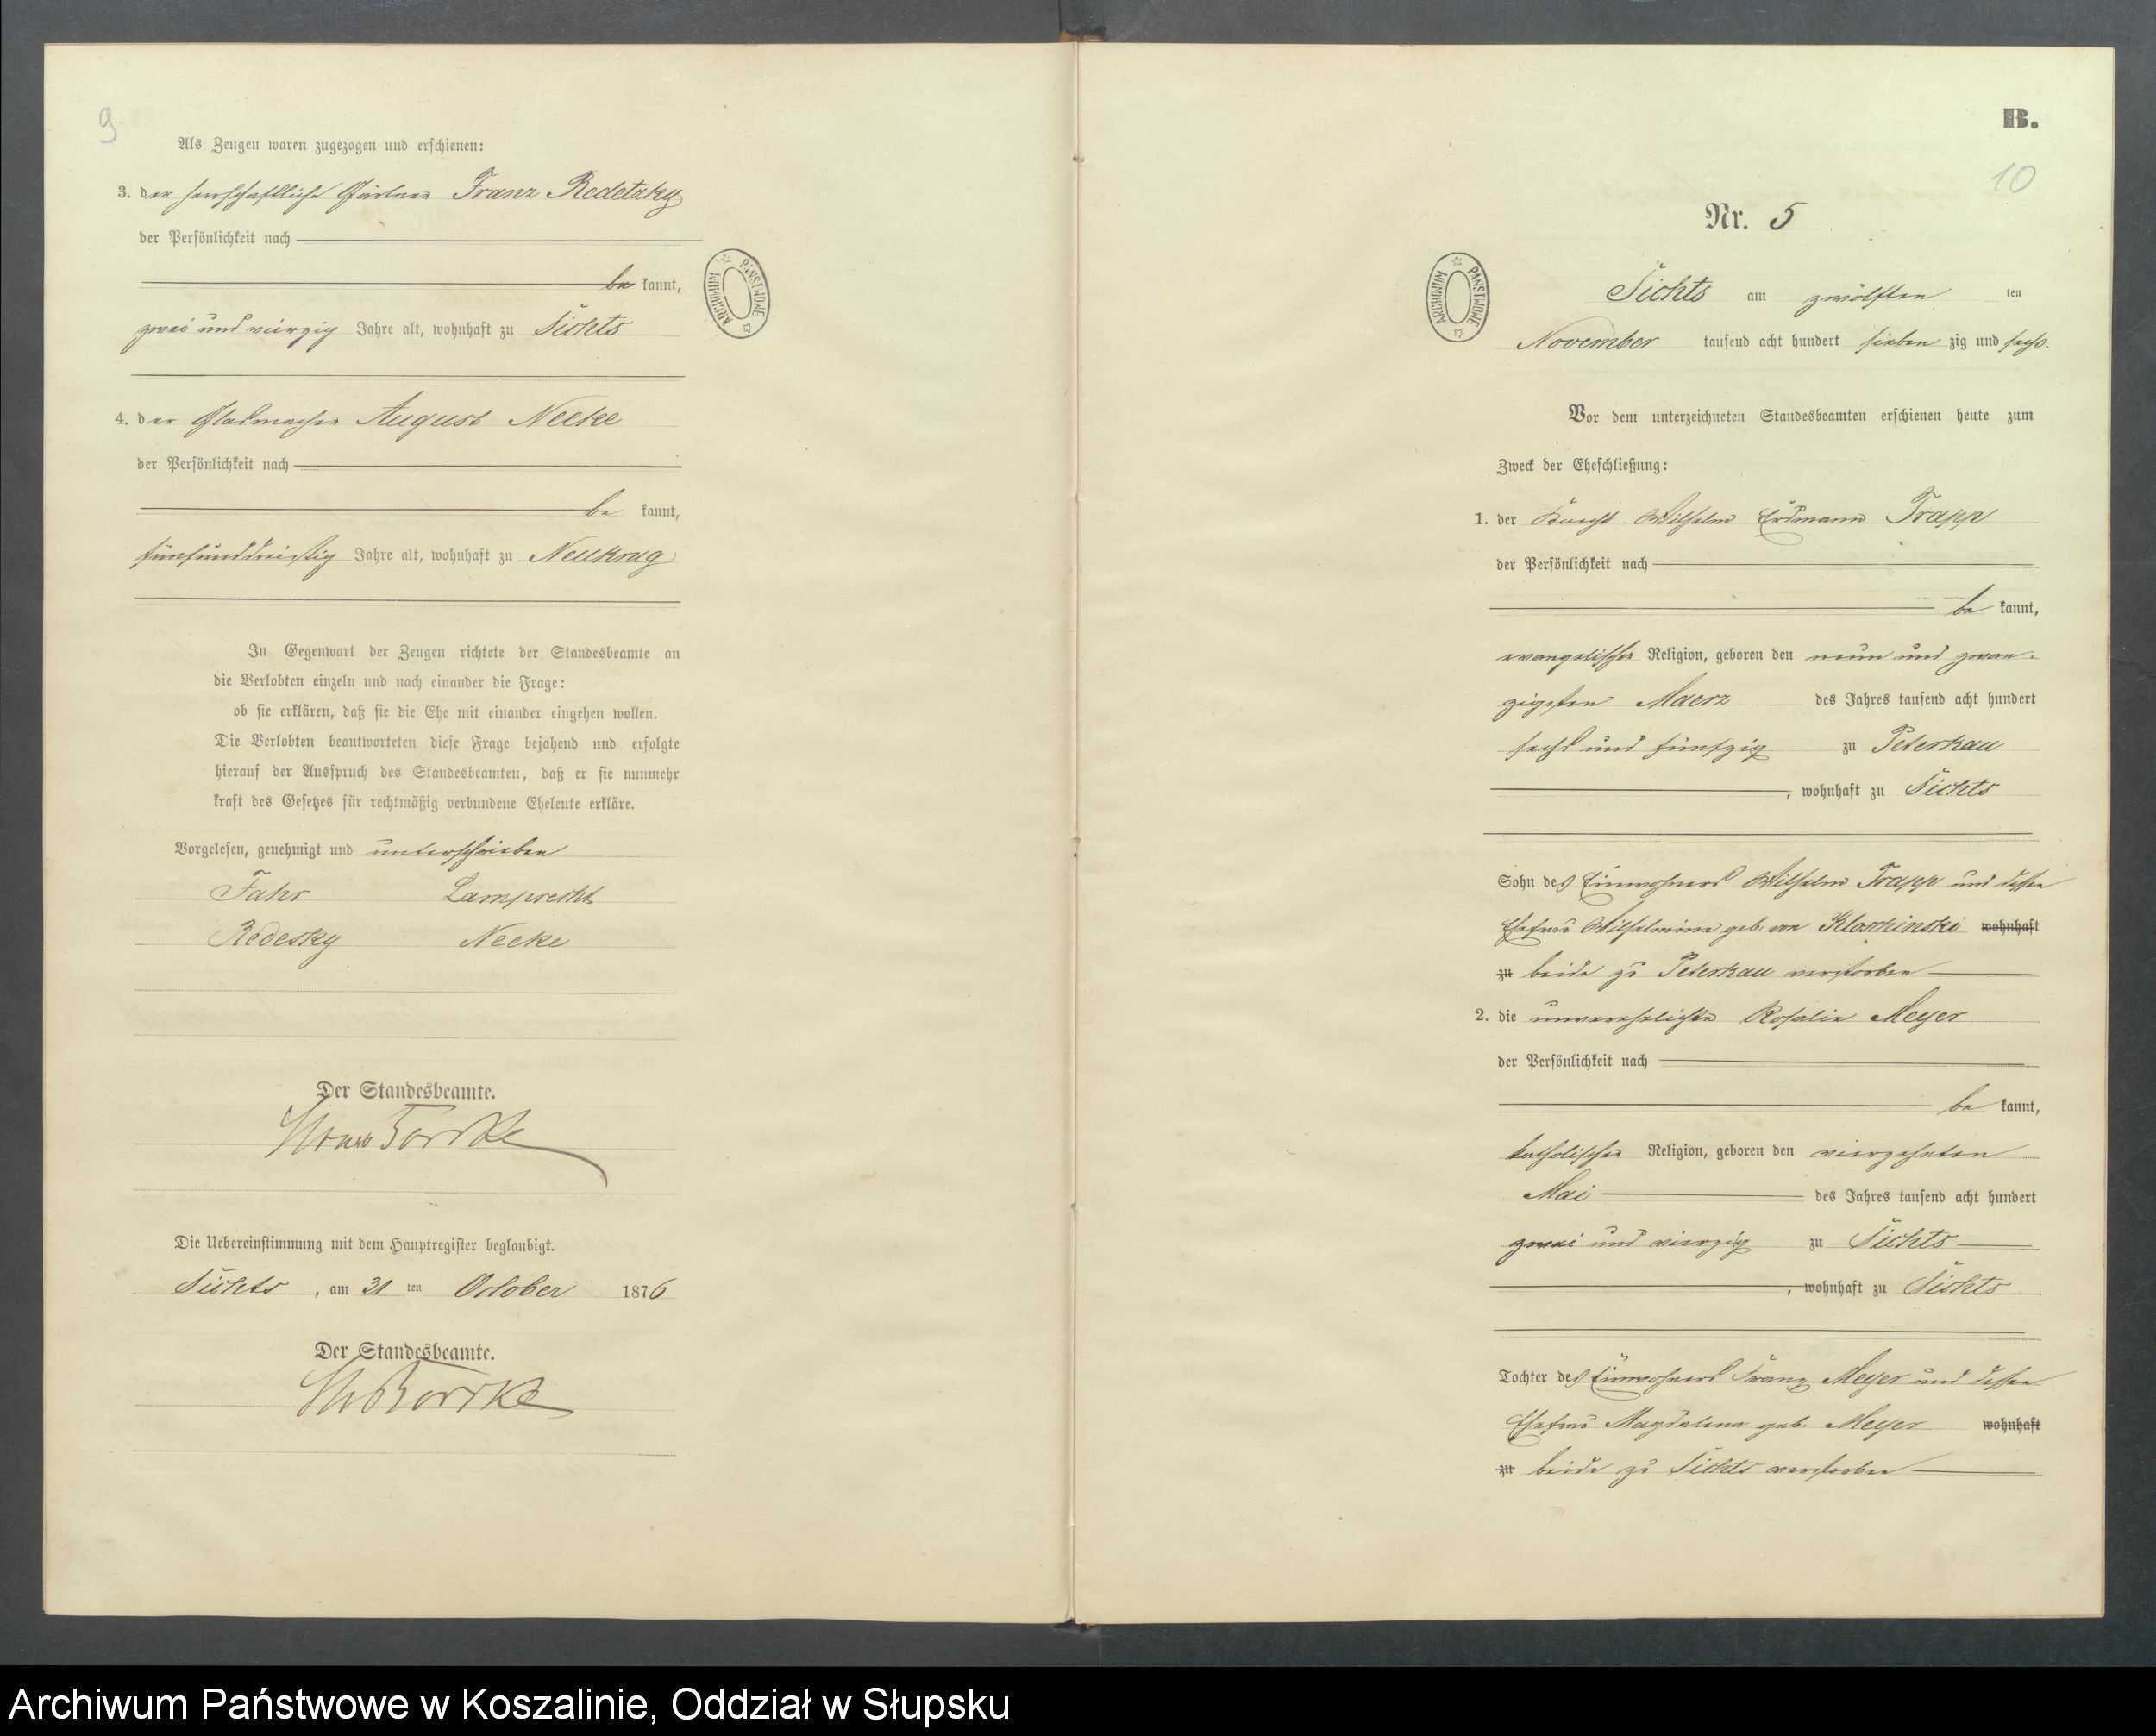 9
Als Zeugen waren zugezogen und erschienen:
3. der herrschaftliche Gärtner Franz Redetzky
der Persönlichkeit nach
be kannt,
zwei und vierzig Jahre alt, wohnhaft zu Sichts
4. der Glasmacher August Necke
der Persönlichkeit nach
be kannt,
fünfunddreißig Jahre alt, wohnhaft zu Neukrug
In Gegenwart der Zeugen richtete der Standesbeamte an
die Verlobten einzeln und nach einander die Frage:
ob sie erklären, daß sie die Ehe mit einander eingehen wollen.
Die Verlobten beantworteten diese Frage bejahend und erfolgte
hierauf der Ausspruch des Standesbeamten, daß er sie nunmehr
kraft des Gesetzes für rechtmäßig verbundene Eheleute erkläre.
Vorgelesen, genehmigt und unterschrieben
Fahr Lamprecht
Redesky Necke
Der Standesbeamte.
Die Uebereinstimmung mit dem Hauptregister beglaubigt.
Sichts, am 31 ten October 1876
Der Standesbeamte.
ARCHIWUM PAŃSTWOWE
B.
10
Nr. 5
ARCHIWUM PAŃSTWOWE
Sichts am zwölften ten
November tausend acht hundert sieben zig und sechs.
Vor dem unterzeichneten Standesbeamten erschienen heute zum
Zweck der Eheschließung:
1. der Knecht Wilhelm Erdmann Trapp
der Persönlichkeit nach
be kannt,
evangelischer Religion, geboren den neun und zwan-
zigsten Maerz des Jahres tausend acht hundert
sechs und fünfzig zu Peterkau
, wohnhaft zu Sichts
Sohn des Einwohners Wilhelm Trapp und dessen
Ehefrau Wilhelmine geb. von Kloskinski wohnhaft
zu beide zu Peterkau verstorben
2. die unverehelichte Rosalie Meyer
der Persönlichkeit nach
be kannt,
katholischer Religion, geboren den vierzehnten
Mai des Jahres tausend acht hundert
zwei und vierzig zu Sichts
, wohnhaft zu Sichts
Tochter des Einwohners Franz Meyer und dessen
Ehefrau Magdalena geb. Meyer wohnhaft
zu beide zu Sichts verstorben
Archiwum Państwowe w Koszalinie, Oddział w Słupsku